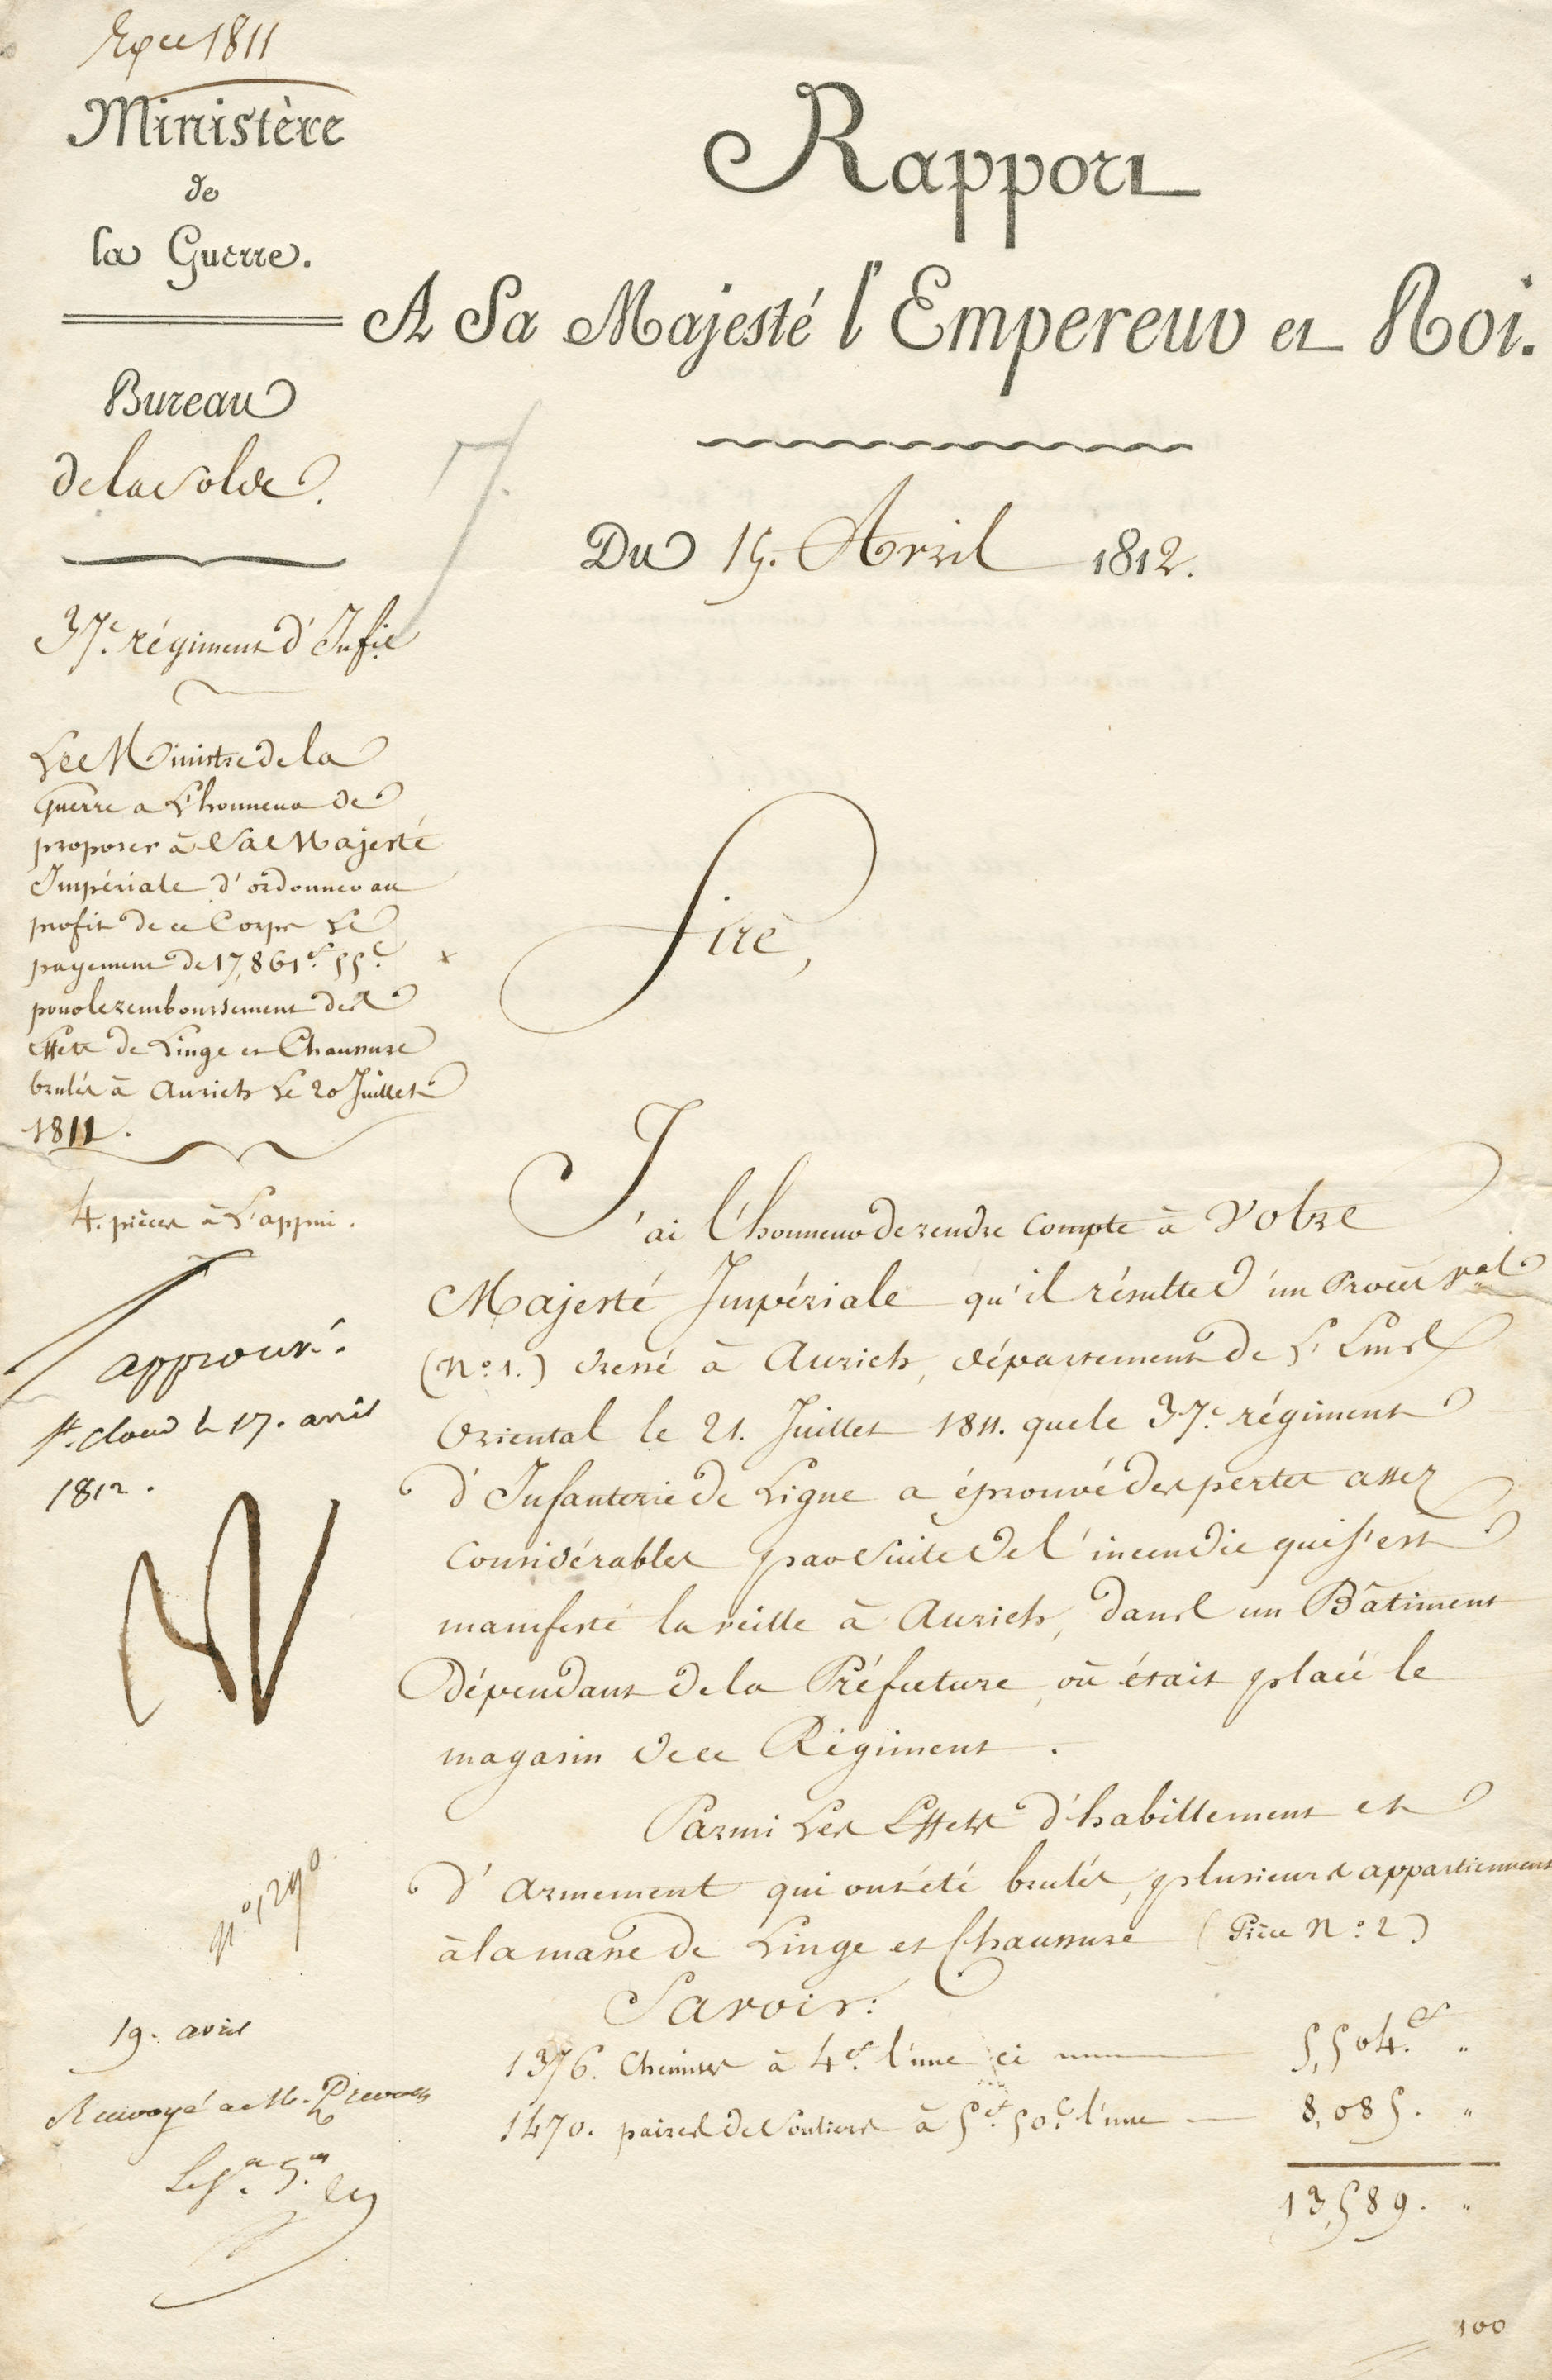 Exce 1811
Ministère
de
la Guerre.
Bureau
de la Solde.
37.e régiment d'Inf.ie
Le Ministre de la
Guerre a l'honneur de
proposer à Sa Majesté
Impériale d'ordonner au
profit de ce Corps le
payement de 17,861.f 55.c
pour le remboursement des
effets de Linge et Chaussure
brulés à Aurich le 20 Juillet
1811.
4. pièces à l'appui.
approuvé.
St. cloud le 17. avril
1812.
N.o 1290
19. avril
Renvoyé a M.
Rapport
A Sa Majesté l'Empereur et Roi.
Du 15. Avril 1812.
Sire,
J'ai l'honneur de rendre compte à Votre
Majesté Impériale qu'il résulte d'un Procès v.al
(N.o 1.) dressé à Aurich, département de l'Ems
Oriental le 21. Juillet 1811. que le 37.e régiment
d'Infanterie de Ligne a éprouvé des pertes assez
considérables par suite de l'incendie qui s'est
manifesté la veille à Aurich, dans un Bâtiment
dépendant de la Préfecture, où était placé le
magasin de ce Régiment.
Parmi les Effets d'habillement et
d'armement qui ont été brulés, plusieurs appartiennent
à la masse de Linge et Chaussure (Pièce N.o 2)
Savoir:
1376. Chemises à 4.f l'une ci 5,504.f "
1470. paires de Souliers à 5.f 50.c l'une 8,085. "
13,589. "
100